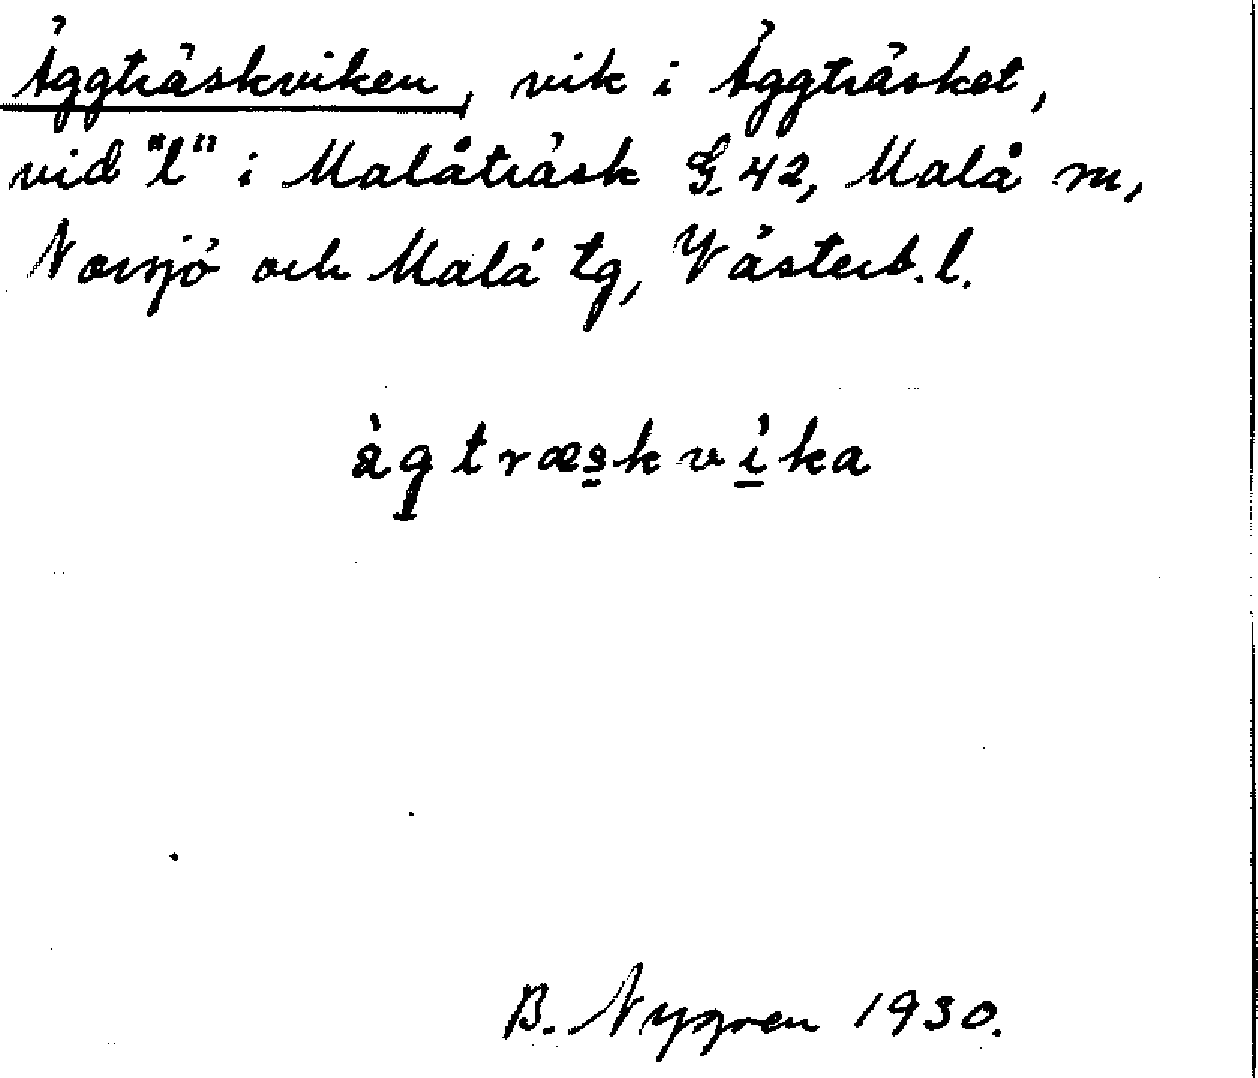 Äggträskviken, vik i Äggträsket,
vid "l" i Malåträsk G. 42, Malå sn,
Norsjö och Malå tg, Västerb. l.
ägtræskvika
B. Nygren 1930.